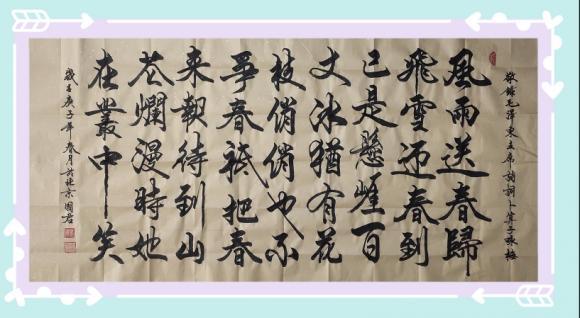 敬錄毛澤東主席詩詞卜算子咏梅
風雨送春歸
飛雪迎春到
已是懸崖百
丈冰猶有花
枝俏俏也不
爭春祇把春
来報待到山
花爛漫時她
在叢中笑
歲在庚子年春月於北京國君